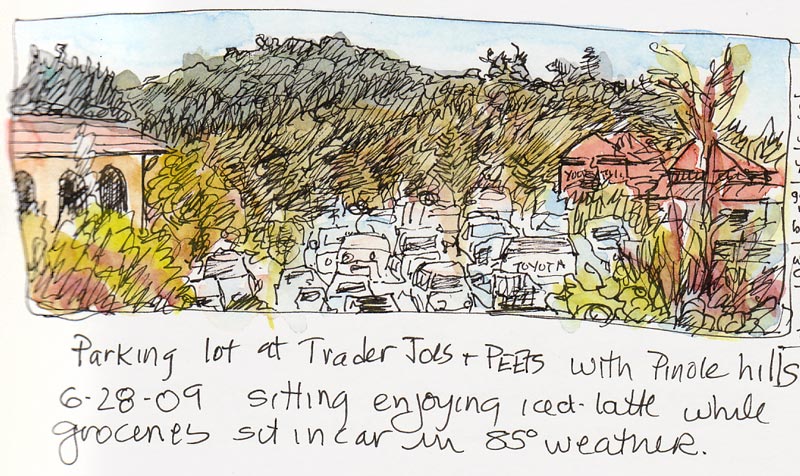 TOYOTA
Parking lot at Trader Joes + PEETS with Pinole hills
6-28-09 sitting enjoying iced-latte while
groceries sit in car in 85° weather.